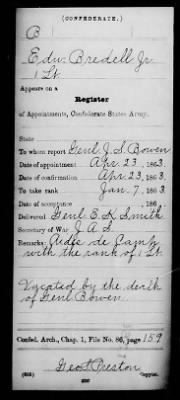 (CONFEDERATE.)
B
Edw. Bredell Jr.
1 Lt.
Appears on a
Register
of Appointments, Confederate States Army.
State
To whom report Genl J. S. Bowen
Date of appointment Apr 23, 1863.
Date of confirmation Apr 23, 1863.
To take rank Jan. 7, 1863
Date of acceptance , 186 .
Delivered Genl E. K. Smith
Secretary of War J. A. S.
Remarks: Aide de Camp
with the rank of 1 Lt.
Vacated by the death
of Genl Bowen.
Confed. Arch., Chap. 1, File No. 86, page 159
Geo. Preston
Copyist.